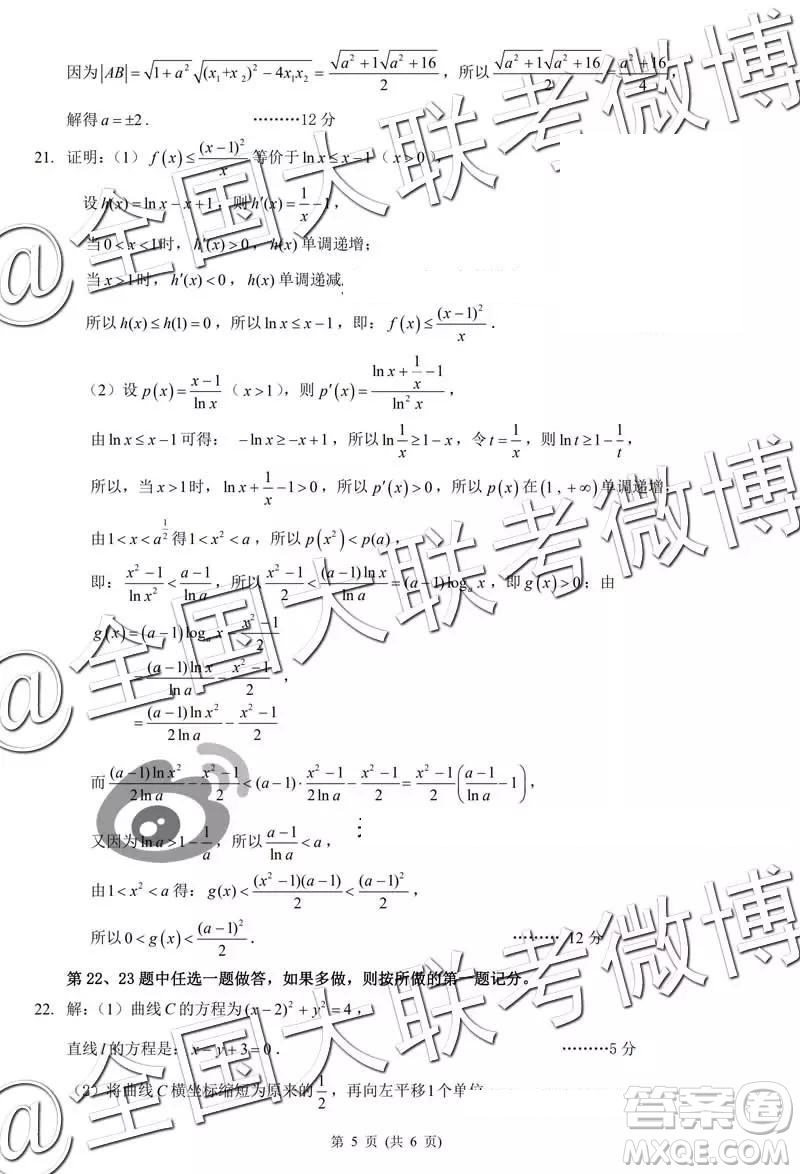 因为|AB|=√(1+a²)√((x₁+x₂)²-4x₁x₂)=√(a²+1)√(a²+16)/2，所以√(a²+1)√(a²+16)/2=(a²+16)/4，
解得a=±2． ………12分
21. 证明：（1）f(x)≤(x-1)²/x 等价于ln x≤x-1（x>0），
设h(x)=ln x-x+1，则h′(x)=1/x-1，
当0<x<1时，h′(x)>0，h(x)单调递增；
当x>1时，h′(x)<0，h(x)单调递减，
所以h(x)≤h(1)=0，所以ln x≤x-1，即：f(x)≤(x-1)²/x．
（2）设p(x)=(x-1)/ln x（x>1），则p′(x)=(ln x+1/x-1)/ln²x，
由ln x≤x-1可得： -ln x≥-x+1，所以ln 1/x≥1-x，令t=1/x，则ln t≥1-1/t，
所以，当x>1时，ln x+1/x-1>0，所以p′(x)>0，所以p(x)在(1，+∞)单调递增；
由1<x<a^(1/2)得1<x²<a，所以p(x²)<p(a)，
即：(x²-1)/ln x²<(a-1)/ln a，所以(x²-1)/2<(a-1)ln x/ln a=(a-1)logₐx，即g(x)>0；由
g(x)=(a-1)logₐx-(x²-1)/2
=(a-1)ln x/ln a-(x²-1)/2，
=(a-1)ln x²/2ln a-(x²-1)/2
而(a-1)ln x²/2ln a-(x²-1)/2<(a-1)·(x²-1)/2ln a-(x²-1)/2=(x²-1)/2((a-1)/ln a-1)，
又因为ln a>1-1/a，所以(a-1)/ln a<a，
由1<x²<a得：g(x)<(x²-1)(a-1)/2<(a-1)²/2，
所以0<g(x)<(a-1)²/2． ………12分
第22、23题中任选一题做答，如果多做，则按所做的第一题记分。
22. 解：（1）曲线C的方程为(x-2)²+y²=4，
直线l的方程是：x-y+3=0． ………5分
（2）将曲线C横坐标缩短为原来的1/2，再向左平移1个单位
第 5 页 (共 6 页)
@全国大联考微博
@全国大联考微博
答案卷
MXQE.COM